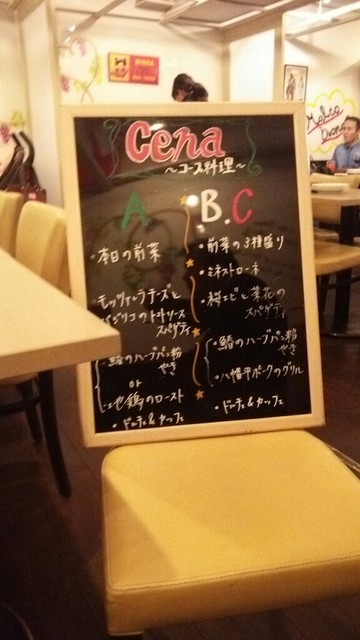 Cena
〜コース料理〜
A
・本日の前菜
モッツァレラチーズと
バジリコのトマトソース
スパゲティ
・鰆のハーブパン粉
やき
or
地鶏のロースト
・ドルチェ&カッフェ
B.C
・前菜の3種盛り
・ミネストローネ
・桜エビと菜花の
スパゲティ
・鰆のハーブパン粉
やき
・八幡平ポークのグリル
・ドルチェ&カッフェ